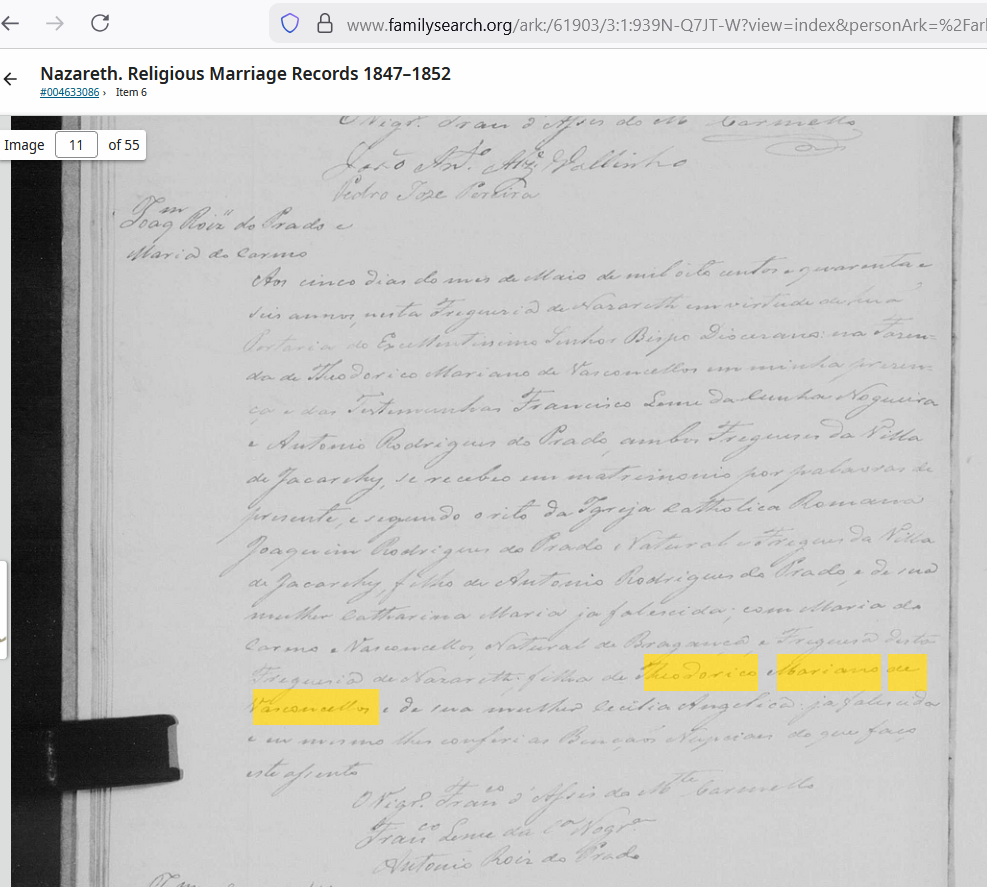 www.familysearch.org/ark:/61903/3:1:939N-Q7JT-W?view=index&personArk=%2Far
Nazareth. Religious Marriage Records 1847–1852
#004633086 › Item 6
Image 11 of 55
O Vigr.º Fran d'Assis do Mte Carmello
João Ant.º Vallinho
Pedro Joze Pereira
Joaqm Roiz do Prado e
Maria do Carmo
Aos cinco dias do mes de Maio de mil oito centos e quarenta e
seis annos, nesta Freguezia de Nazareth em virtude de huã
Portaria do Excellentissimo Senhor Bispo Diocesano: na Fazen-
da de Theodorico Mariano de Vasconcellos em minha prezen-
ça e das Testemunhas Francisco Leme da Cunha Nogueira
e Antonio Rodrigues do Prado, ambos Freguezes da Villa
de Jacarehy, se recebeo em matrimonio por palavras de
prezente, e segundo o rito da Igreja Catholica Romana
Joaquim Rodrigues do Prado Natural e Freguez da Villa
de Jacarehy, filho de Antonio Rodrigues do Prado, e de sua
mulher Catharina Maria ja falescida; com Maria do
Carmo e Vasconcellos, Natural de Bragança e Freguesa desta
Freguezia de Nazareth, filha de Theodorico Mariano de
Vasconcellos e de sua mulher Cecilia Angelica: ja falescida
e eu mesmo lhes conferi as Bençaõs Nupciaes do que faço
este assento
O Vigr.º Franco d'Assis do Mte Carmello
Franco Leme da Ca Nogra
Antonio Roiz do Prado